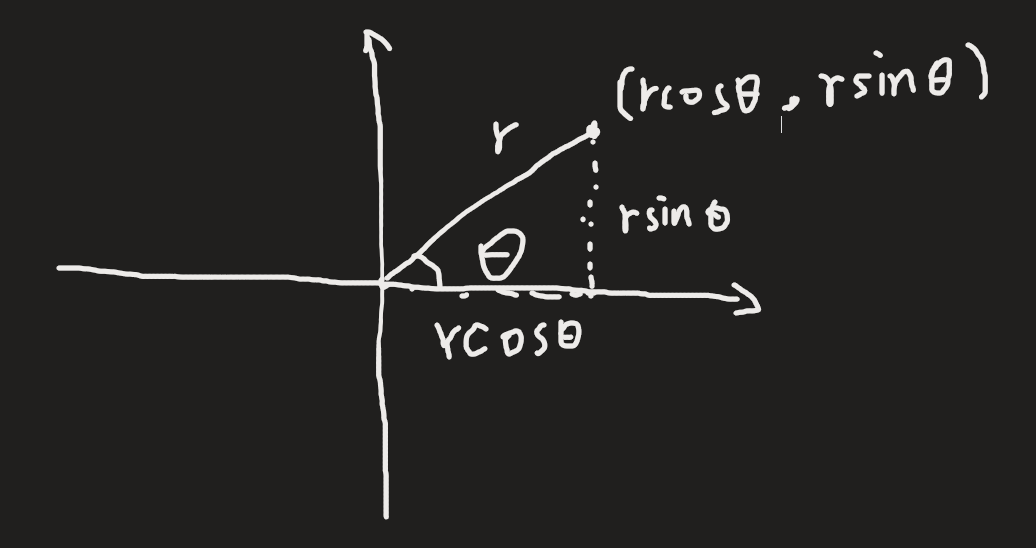 (rcosθ, rsinθ)
r
rsinθ
θ
rcosθ